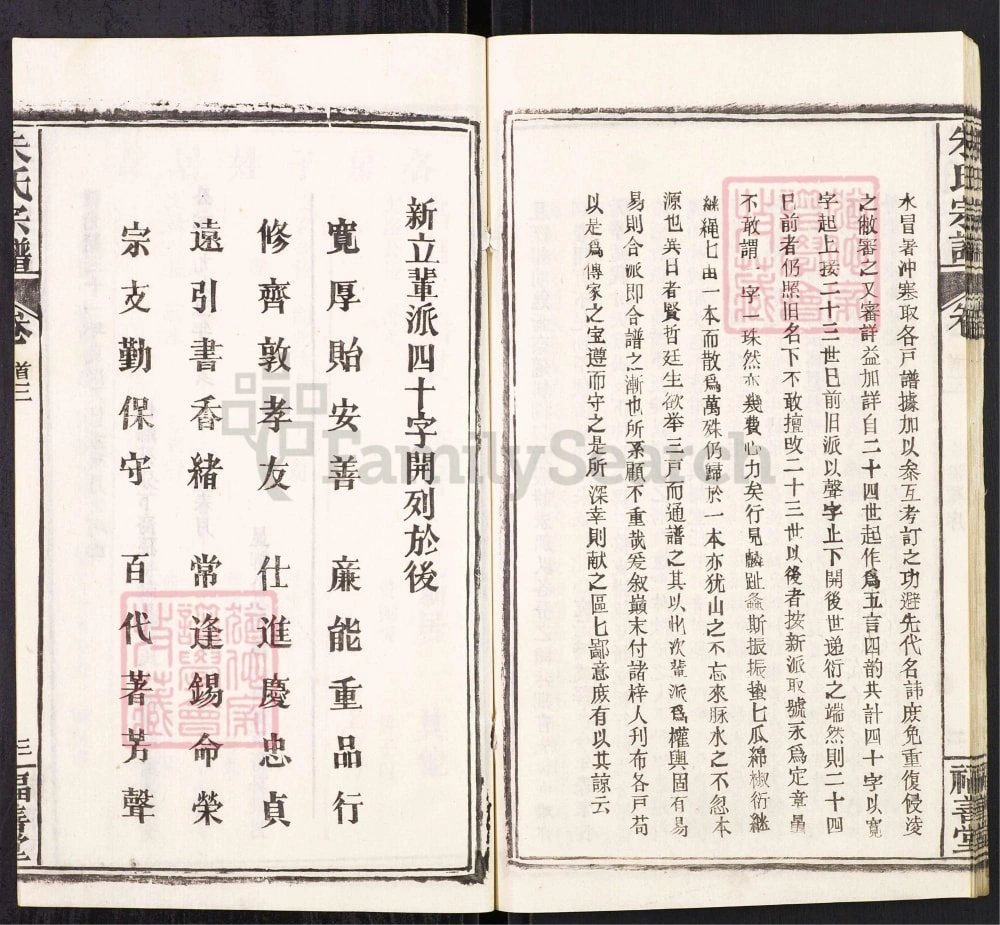 氷冒暑沖寒取各戸譜據加以叅互考訂之功避先代名諱庻免重復侵凌
之敝審之又審詳益加詳自二十四世起作爲五言四韵共計四十字以寬
字起上接二十三世已前旧派以聲字止下開後世递衍之端然則二十四
已前者仍照旧名下不敢擅攺二十三世以後者按新派取號永爲定章量
不敢謂一字一珠然亦幾費心力矣行見麟趾螽斯振振蟄匕瓜綿椒衍継
継繩匕由一本而散爲萬殊仍歸於一本亦犹山之不忘來脉水之不忽本
源也異日者賢哲廷生欲举三戸而通譜之其以此次輩派爲權輿固有易
易則合派即合譜之漸也所系顧不重哉爰叙巔末付諸梓人刋布各戸苟
以是爲傳家之宝遵而守之是所深幸則献之區匕鄙意庻有以其諒云
朱氏宗譜
卷
福善堂
新立輩派四十字開列於後
寬厚貽安善 亷能重品行
修齊敦孝友 仕進慶忠貞
遠引書香緒 常逢錫命榮
宗支勤保守 百代著芳聲
朱氏宗譜
卷
道三
三
福善堂
FamilySearch